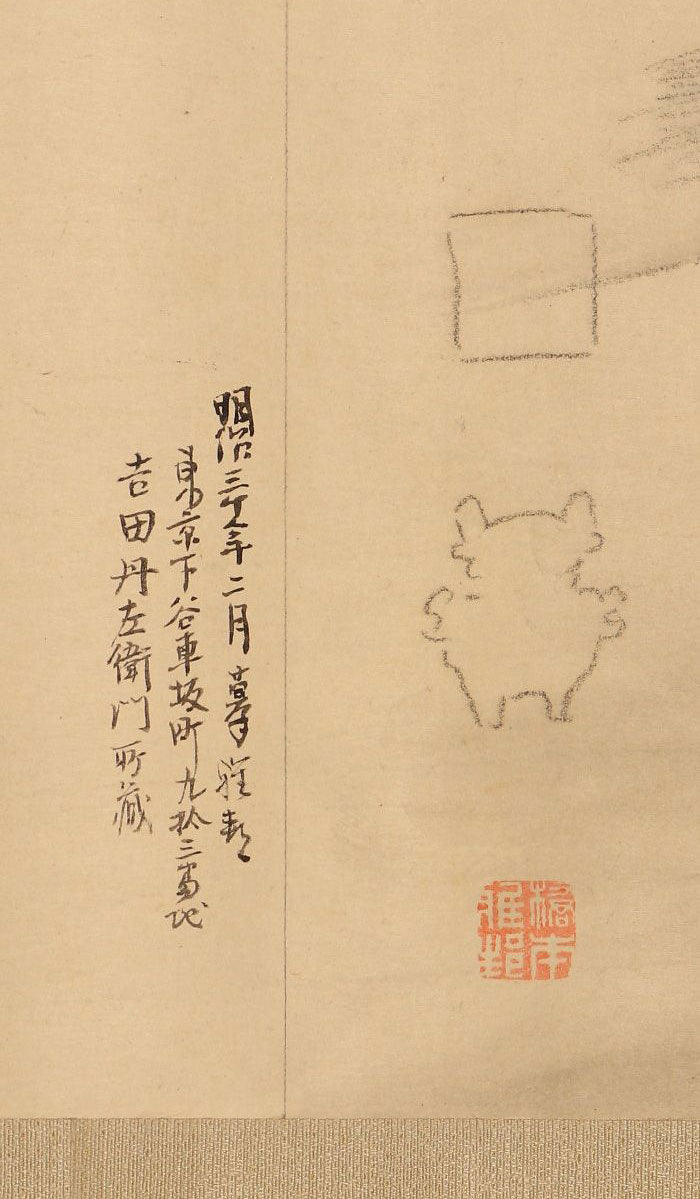 橋本
雅都
明治三十八年二月摹雅都
東京下谷車坂町九拾三番地
吉田丹左衛門所蔵